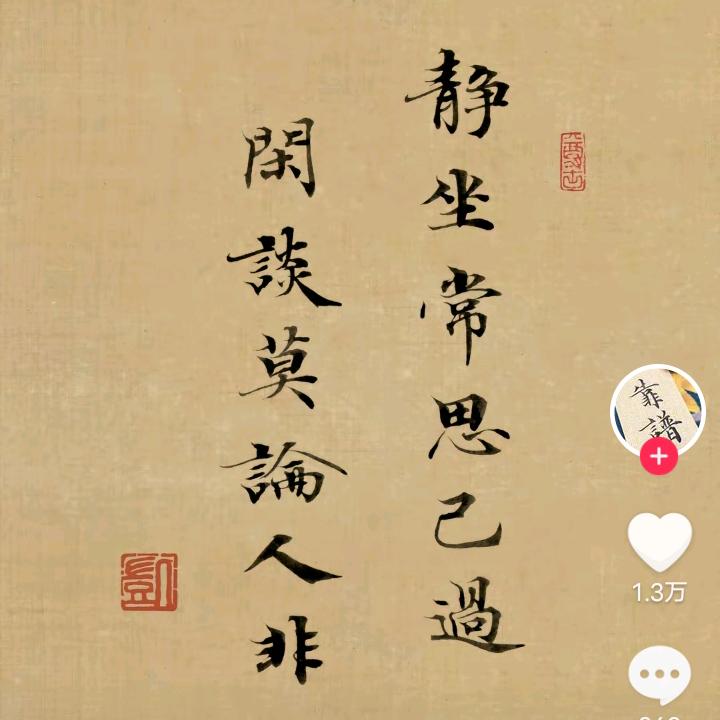 静坐常思己過
閑談莫論人非
靠譜
1.3万